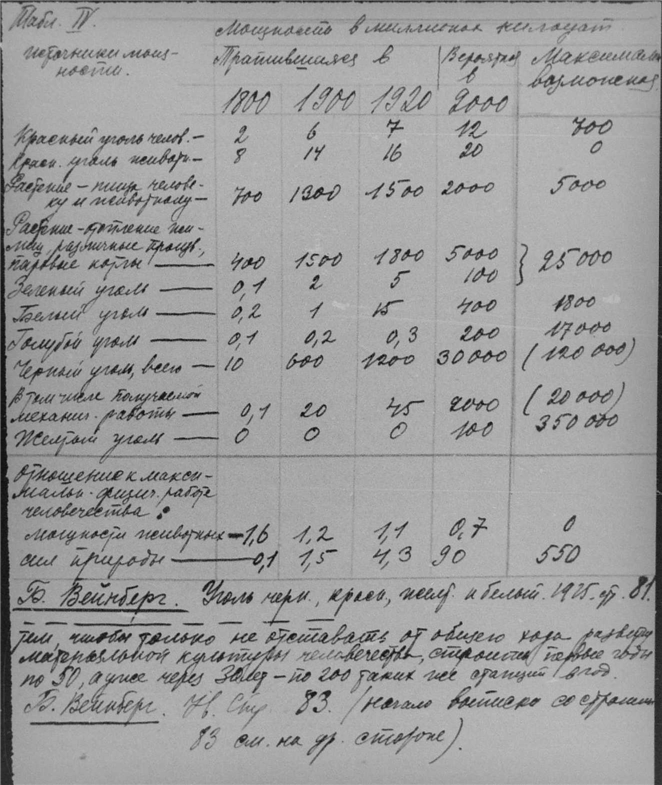 Табл. IV.
Мощность в миллионах киловатт.
источники мощ-
ности.
Тратившиеся в
Вероятная
в
Максимальн.
возможная
1800 1900 1920 2000
Красный уголь челов. — 2 6 7 12 700
Красн. уголь животн — 8 14 16 20 0
Растение – пища челове-
ку и животному — 700 1300 1500 2000 5000
Растение-отопление жи-
лищ, различные произв.,
паровые котлы — 400 1500 1800 5000 } 25 000
Зеленый уголь — 0,1 2 5 100
Белый уголь — 0,2 1 15 400 1800
Голубой уголь — 0,1 0,2 0,3 200 17000
Черный уголь, всего — 10 600 1200 30000 (120 000)
В том числе получаемой
механич. работы — 0,1 20 45 2000 (20 000)
Желтый уголь — 0 0 0 100 350 000
Отношение к макси-
мальн. физич. работе
человечества:
мощности животных — 1,6 1,2 1,1 0,7 0
сил природы — 0,1 1,5 4,3 90 550
Б. Вейнберг. Уголь черн., красн, желт. и белый. 1925. ст. 81.
тем, чтобы только не отставать от общего хода развит
материальной культуры человечества, строить первые годы
по 50, а уже через 30 лет – по 200 таких же станций в год.
Б. Вейнберг. 83. (начало выписки со страницы
83 см. на др. стороне).